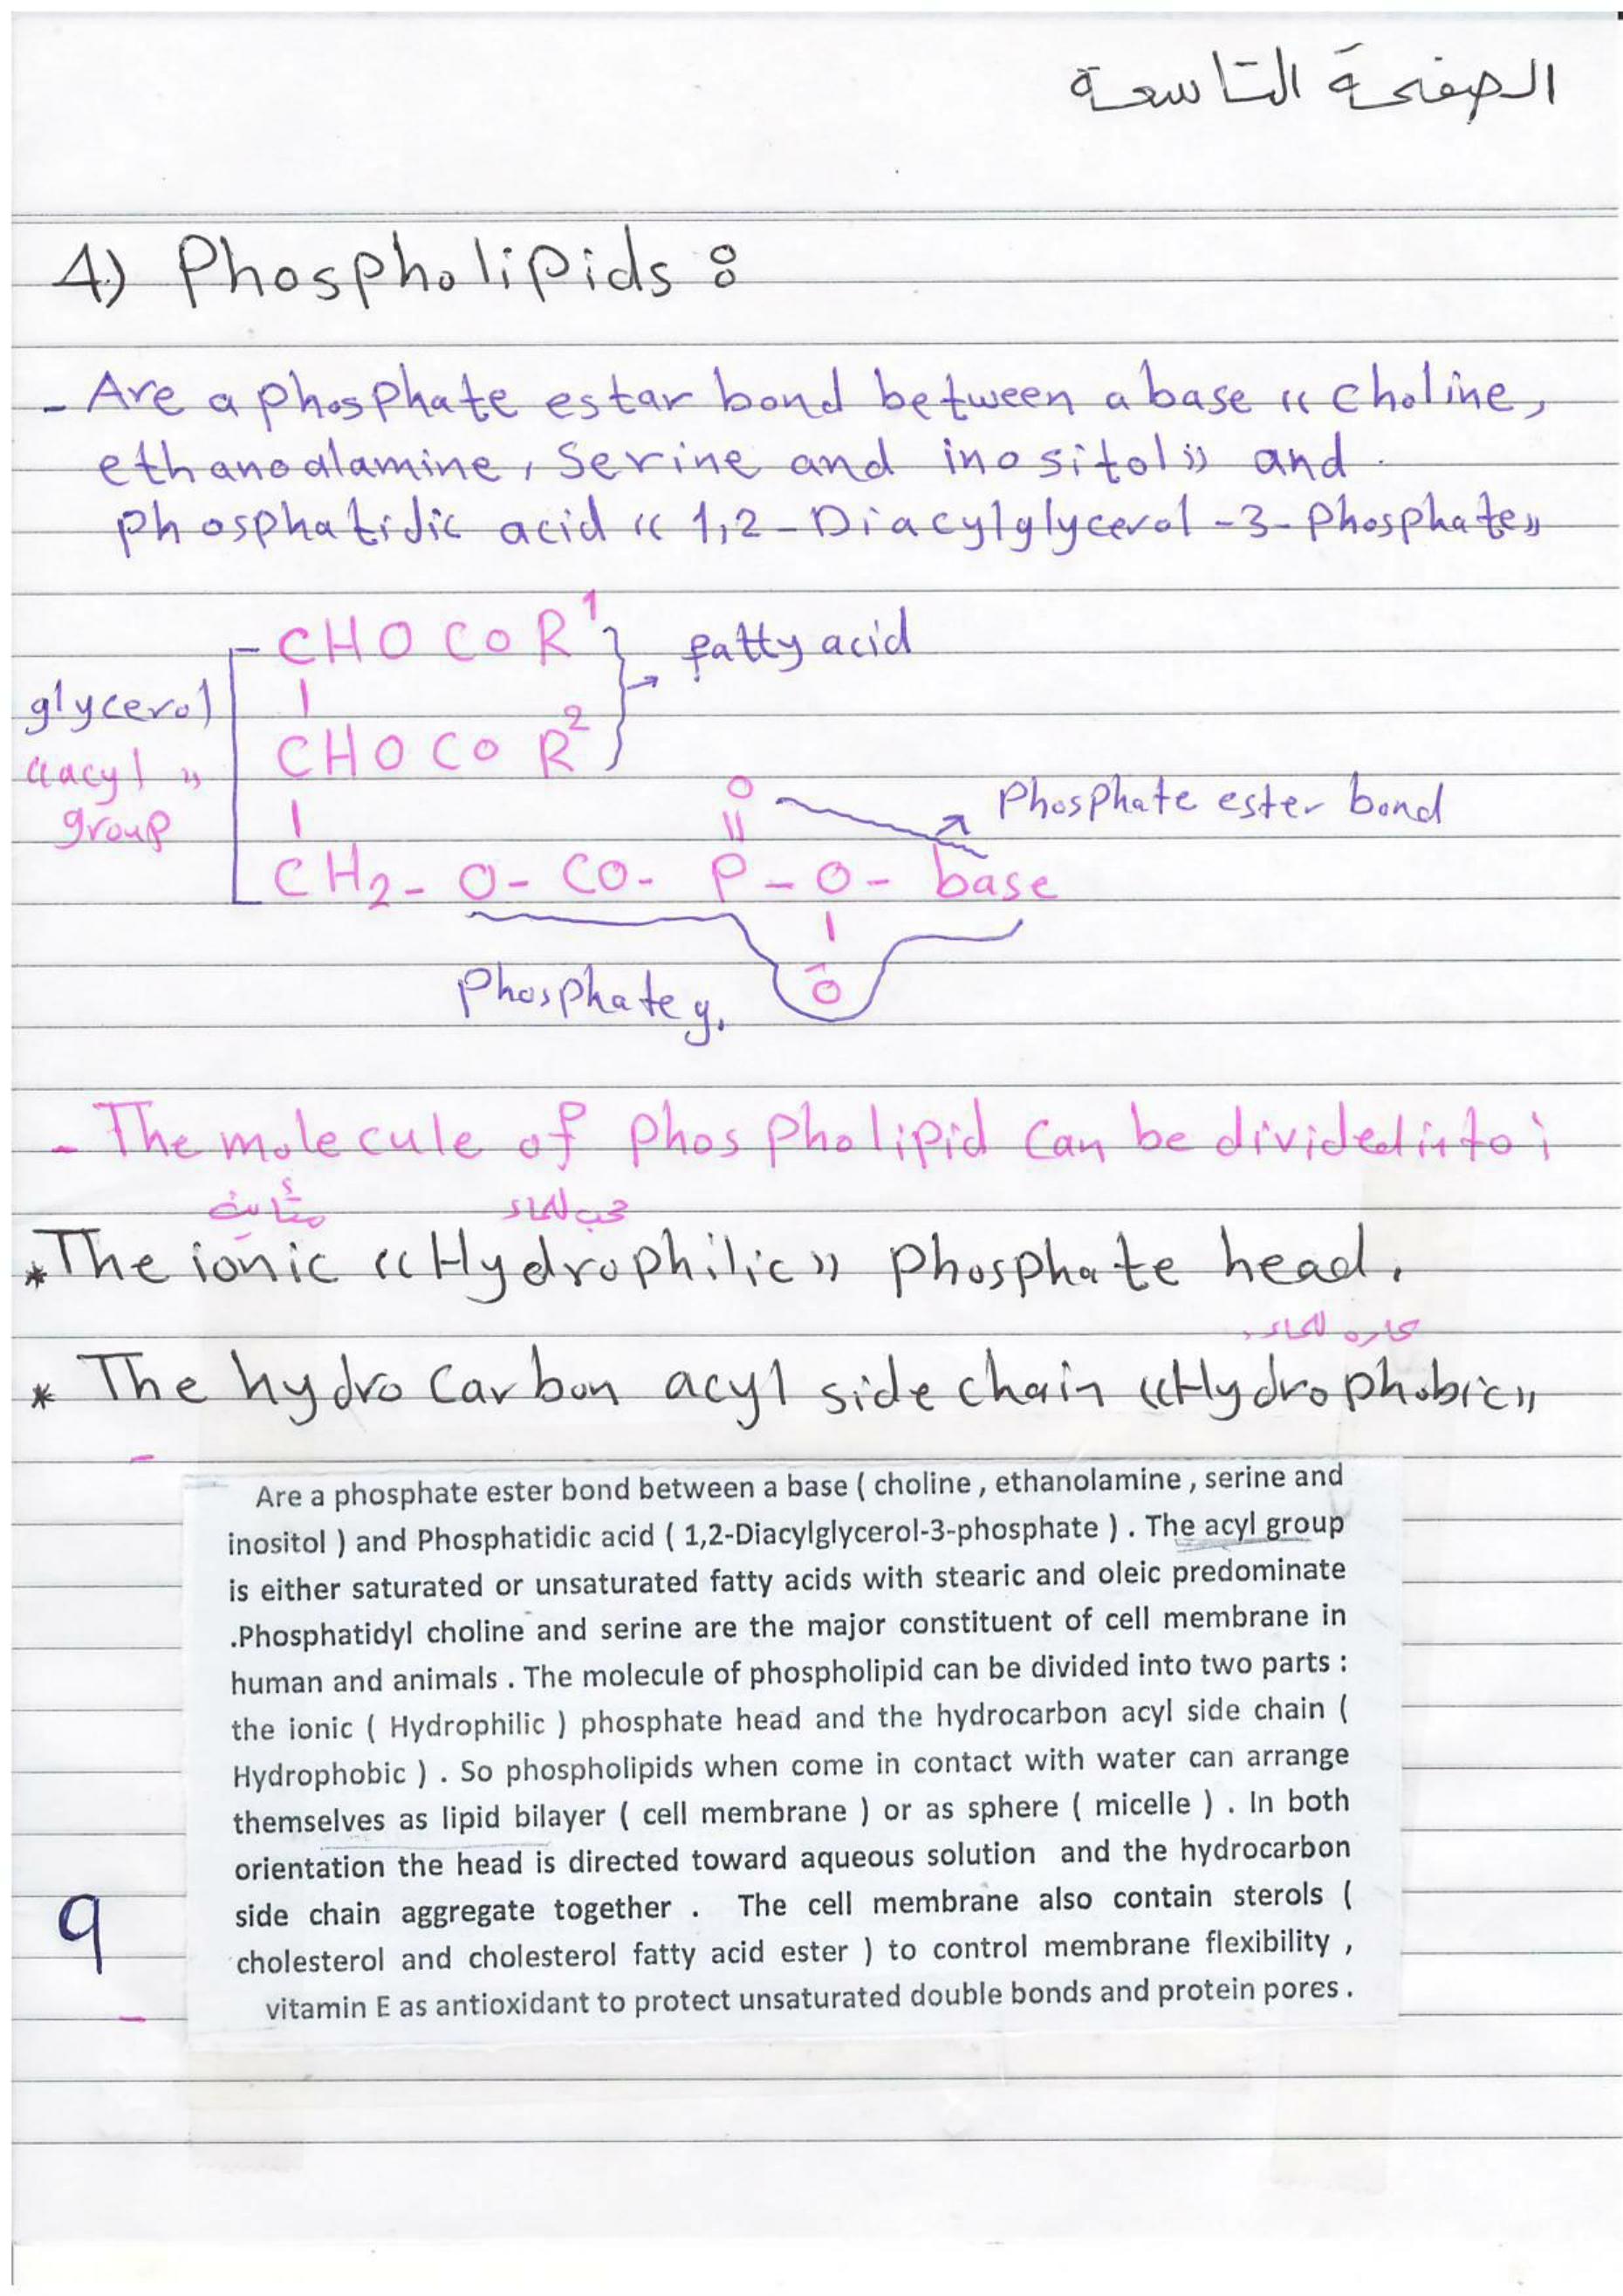 الصفحة التاسعة
4) Phospholipids :
- Are a phosphate estar bond between a base (( choline,
ethanoalamine, Serine and inositol )) and
phosphatidic acid (( 1,2-Diacylglycerol-3-Phosphate ))
CHO CO R1 } → fatty acid
glycerol
CHO CO R2
((acyl ))
group
O
Phosphate ester bond
CH2 - O - CO - P - O - base
Ō
Phosphate g.
- The molecule of phospholipid can be divided into :
محب للماء
* The ionic ((Hydrophilic)) phosphate head.
كاره للماء
* The hydro carbon acyl side chain ((Hydrophobic))
Are a phosphate ester bond between a base ( choline , ethanolamine , serine and
inositol ) and Phosphatidic acid ( 1,2-Diacylglycerol-3-phosphate ) . The acyl group
is either saturated or unsaturated fatty acids with stearic and oleic predominate
.Phosphatidyl choline and serine are the major constituent of cell membrane in
human and animals . The molecule of phospholipid can be divided into two parts :
the ionic ( Hydrophilic ) phosphate head and the hydrocarbon acyl side chain (
Hydrophobic ) . So phospholipids when come in contact with water can arrange
themselves as lipid bilayer ( cell membrane ) or as sphere ( micelle ) . In both
orientation the head is directed toward aqueous solution and the hydrocarbon
side chain aggregate together . The cell membrane also contain sterols (
cholesterol and cholesterol fatty acid ester ) to control membrane flexibility ,
vitamin E as antioxidant to protect unsaturated double bonds and protein pores .
9